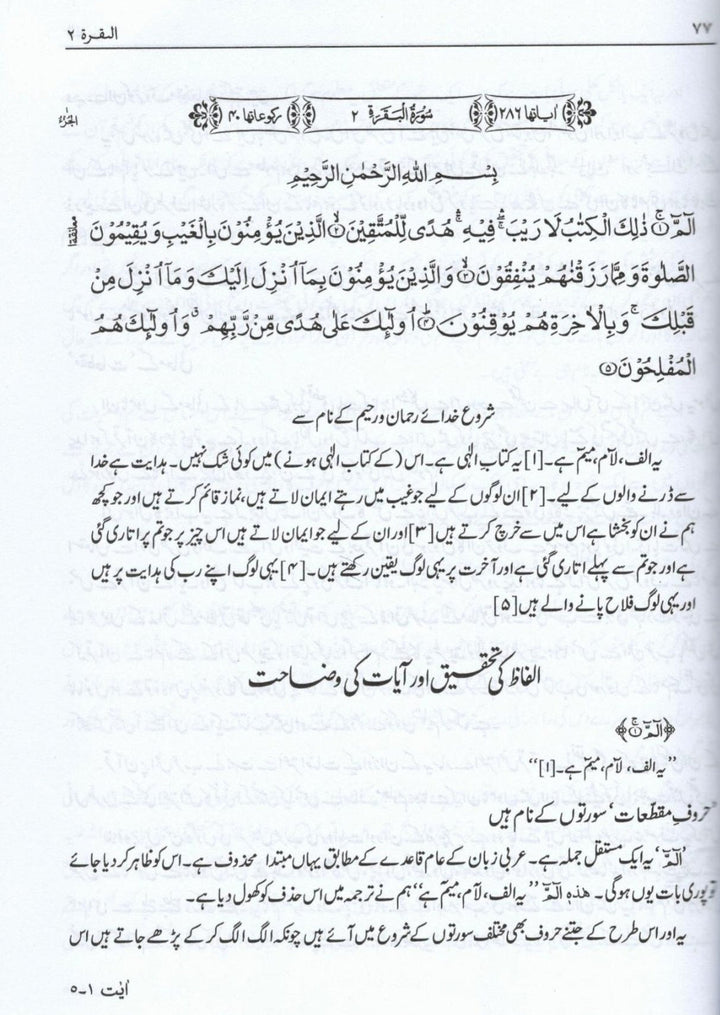 ۷۷ البقرة ۲
اٰیاتھا ۲۸۶ سُوْرَةُ الْبَقَرَةِ ۲ رکوعاتھا ۴۰
الجزء
بِسْمِ اللّٰهِ الرَّحْمٰنِ الرَّحِيْمِ
الٓمّٓ ۚ﴿۱﴾ ذٰلِكَ الْكِتٰبُ لَا رَيْبَ ۛۖ فِيْهِ ۛۚ هُدًى لِّلْمُتَّقِيْنَ ﴿۲﴾ الَّذِيْنَ يُؤْمِنُوْنَ بِالْغَيْبِ وَيُقِيْمُوْنَ
الصَّلٰوةَ وَمِمَّا رَزَقْنٰهُمْ يُنْفِقُوْنَ ﴿۳﴾ وَالَّذِيْنَ يُؤْمِنُوْنَ بِمَاۤ اُنْزِلَ اِلَيْكَ وَمَاۤ اُنْزِلَ مِنْ
قَبْلِكَ ۚ وَبِالْاٰخِرَةِ هُمْ يُوْقِنُوْنَ ﴿۴﴾ اُولٰٓئِكَ عَلٰى هُدًى مِّنْ رَّبِّهِمْ ۙ وَاُولٰٓئِكَ هُمُ
الْمُفْلِحُوْنَ ﴿۵﴾
شروع خدائے رحمان و رحیم کے نام سے
یہ الف، لآم، میمٓ ہے۔[۱] یہ کتاب الٰہی ہے۔ اس (کے کتاب الٰہی ہونے) میں کوئی شک نہیں۔ ہدایت ہے خدا
سے ڈرنے والوں کے لیے۔[۲] ان لوگوں کے لیے جو غیب میں رہتے ایمان لاتے ہیں، نماز قائم کرتے ہیں اور جو کچھ
ہم نے ان کو بخشا ہے اس میں سے خرچ کرتے ہیں[۳] اور ان کے لیے جو ایمان لاتے ہیں اس چیز پر جو تم پر اتاری گئی
ہے اور جو تم سے پہلے اتاری گئی ہے اور آخرت پر یہی لوگ یقین رکھتے ہیں۔[۴] یہی لوگ اپنے رب کی ہدایت پر ہیں
اور یہی لوگ فلاح پانے والے ہیں[۵]
الفاظ کی تحقیق اور آیات کی وضاحت
﴿الٓمّٓ ۚ۱﴾
”یہ الف، لآم، میمٓ ہے۔[۱]“
حروفِ مقطعات سورتوں کے نام ہیں
’الٓمّٓ‘ یہ ایک مستقل جملہ ہے۔ عربی زبان کے عام قاعدے کے مطابق یہاں مبتدا محذوف ہے۔ اس کو ظاہر کر دیا جائے
تو پوری بات یوں ہوگی۔ هٰذِهٖ الٓمّٓ ”یہ الف، لآم، میمٓ ہے“ ہم نے ترجمہ میں اس حذف کو کھول دیا ہے۔
یہ اور اس طرح کے جتنے حروف بھی مختلف سورتوں کے شروع میں آئے ہیں چونکہ الگ الگ کر کے پڑھے جاتے ہیں اس
اٰیت ۱-۵